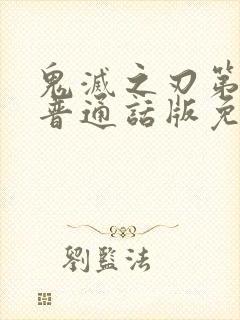 鬼滅之刃第
普通話版免
劉監法